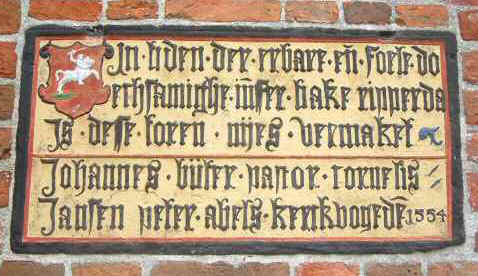 In tiden · der · erbare · en̄ · foele · do
echsamighe · iūfer · bake ripperda
Is · desse · toren · nijes · vermaket
Johannes · büter · pastor · cornelis
Jansen peter · abels · kerkvogedē 1554